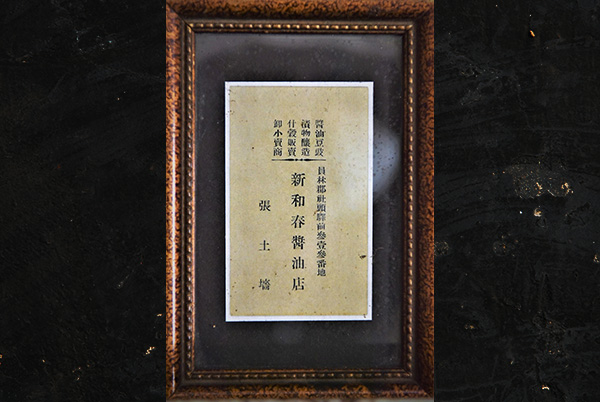 醬油豆豉
漬物釀造
什穀販賣
卸小賣商
員林郡社頭驛前參壹參番地
新和春醬油店
張土墻